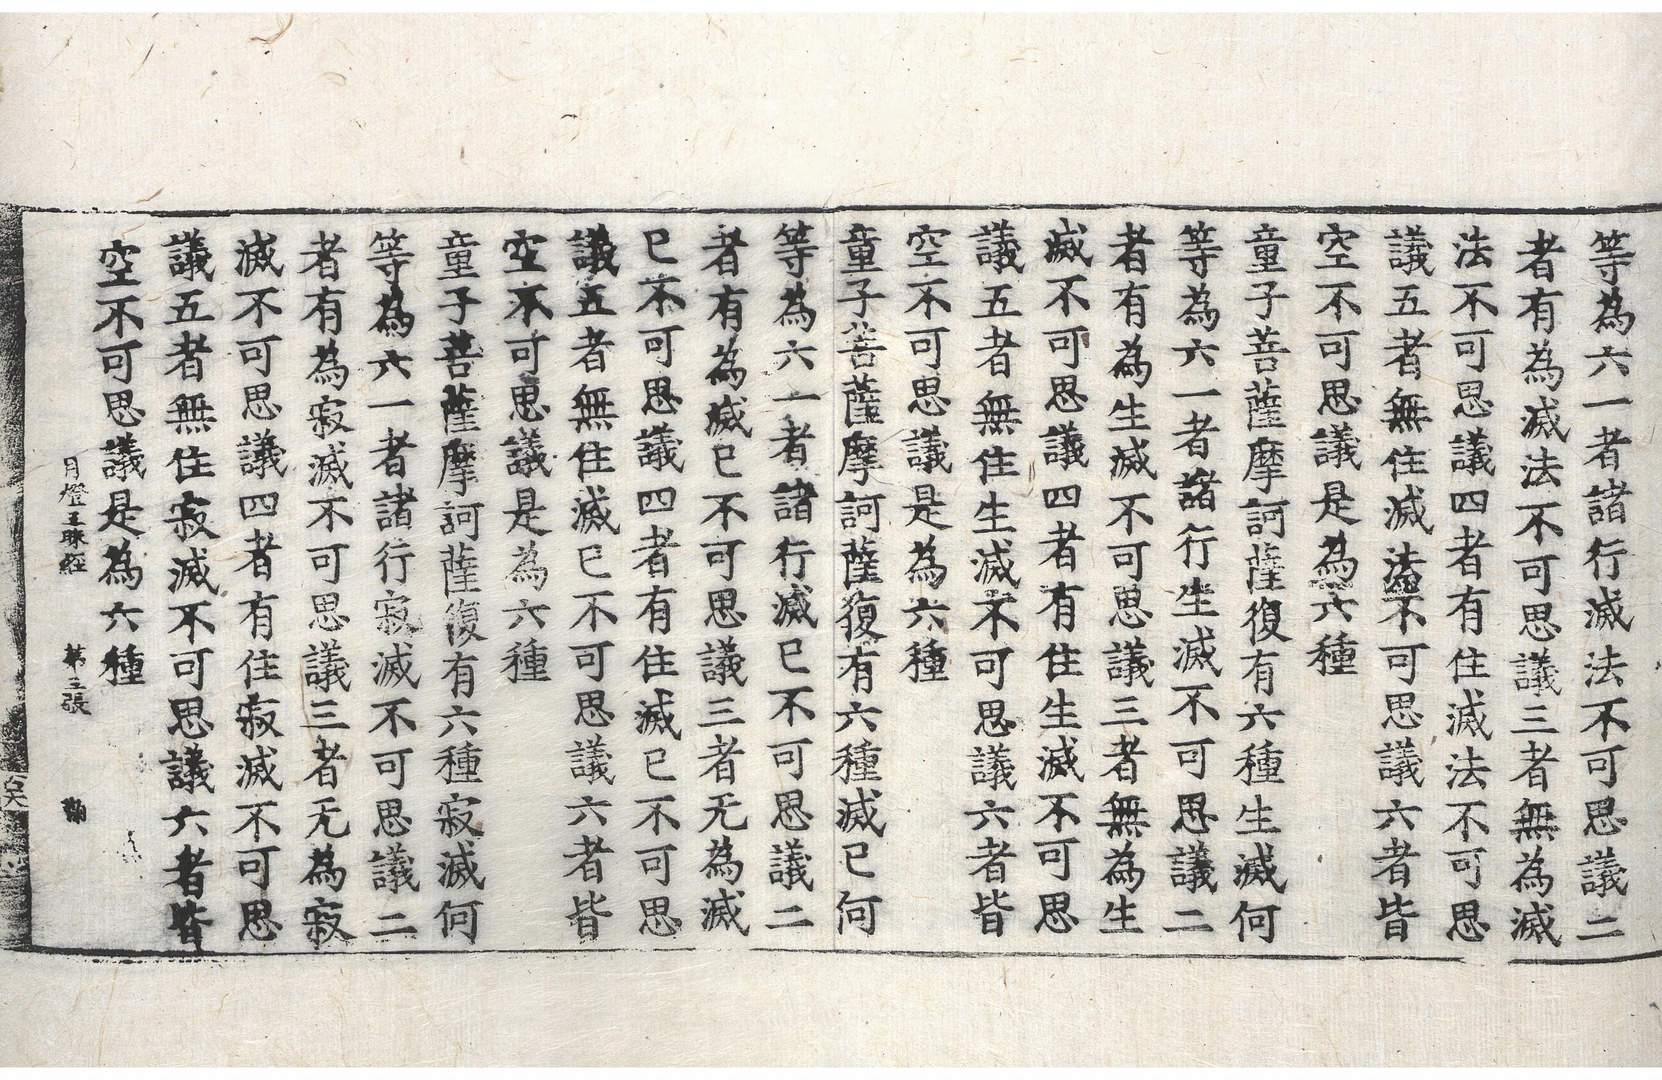 等為六一者諸行滅法不可思議二
者有為滅法不可思議三者無為滅
法不可思議四者有住滅法不可思
議五者無住滅法不可思議六者皆
空不可思議是為六種
童子菩薩摩訶薩復有六種生滅何
等為六一者諸行生滅不可思議二
者有為生滅不可思議三者無為生
滅不可思議四者有住生滅不可思
議五者無住生滅不可思議六者皆
空不可思議是為六種
童子菩薩摩訶薩復有六種滅已何
等為六一者諸行滅已不可思議二
者有為滅已不可思議三者无為滅
已不可思議四者有住滅已不可思
議五者無住滅已不可思議六者皆
空不可思議是為六種
童子菩薩摩訶薩復有六種寂滅何
等為六一者諸行寂滅不可思議二
者有為寂滅不可思議三者无為寂
滅不可思議四者有住寂滅不可思
議五者無住寂滅不可思議六者皆
空不可思議是為六種
月燈三昧經 第三張